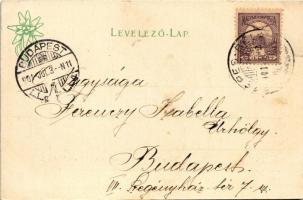 LEVELEZŐ-LAP.
BUDAPEST
Nagysága
Ferenczy Izabella
Urhölgy.
Budapest.
VII. Szegényház tér 7. sz.